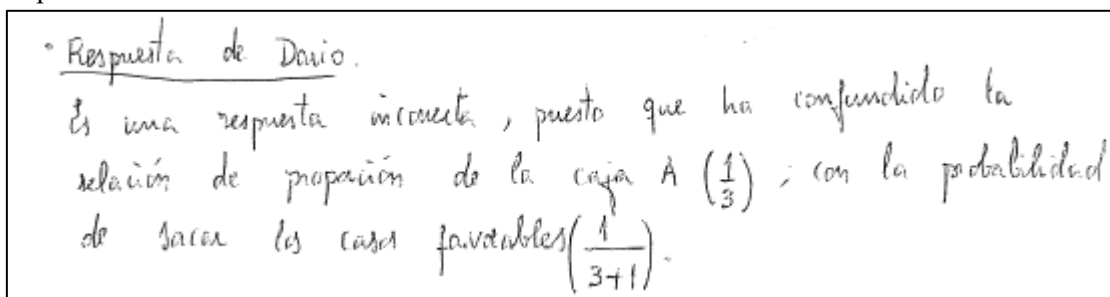 • Respuesta de Dario.
Es una respuesta incorrecta, puesto que ha confundido la
relación de proporción de la caja A (1/3); con la probabilidad
de sacar los casos favorables (1/(3+1)).